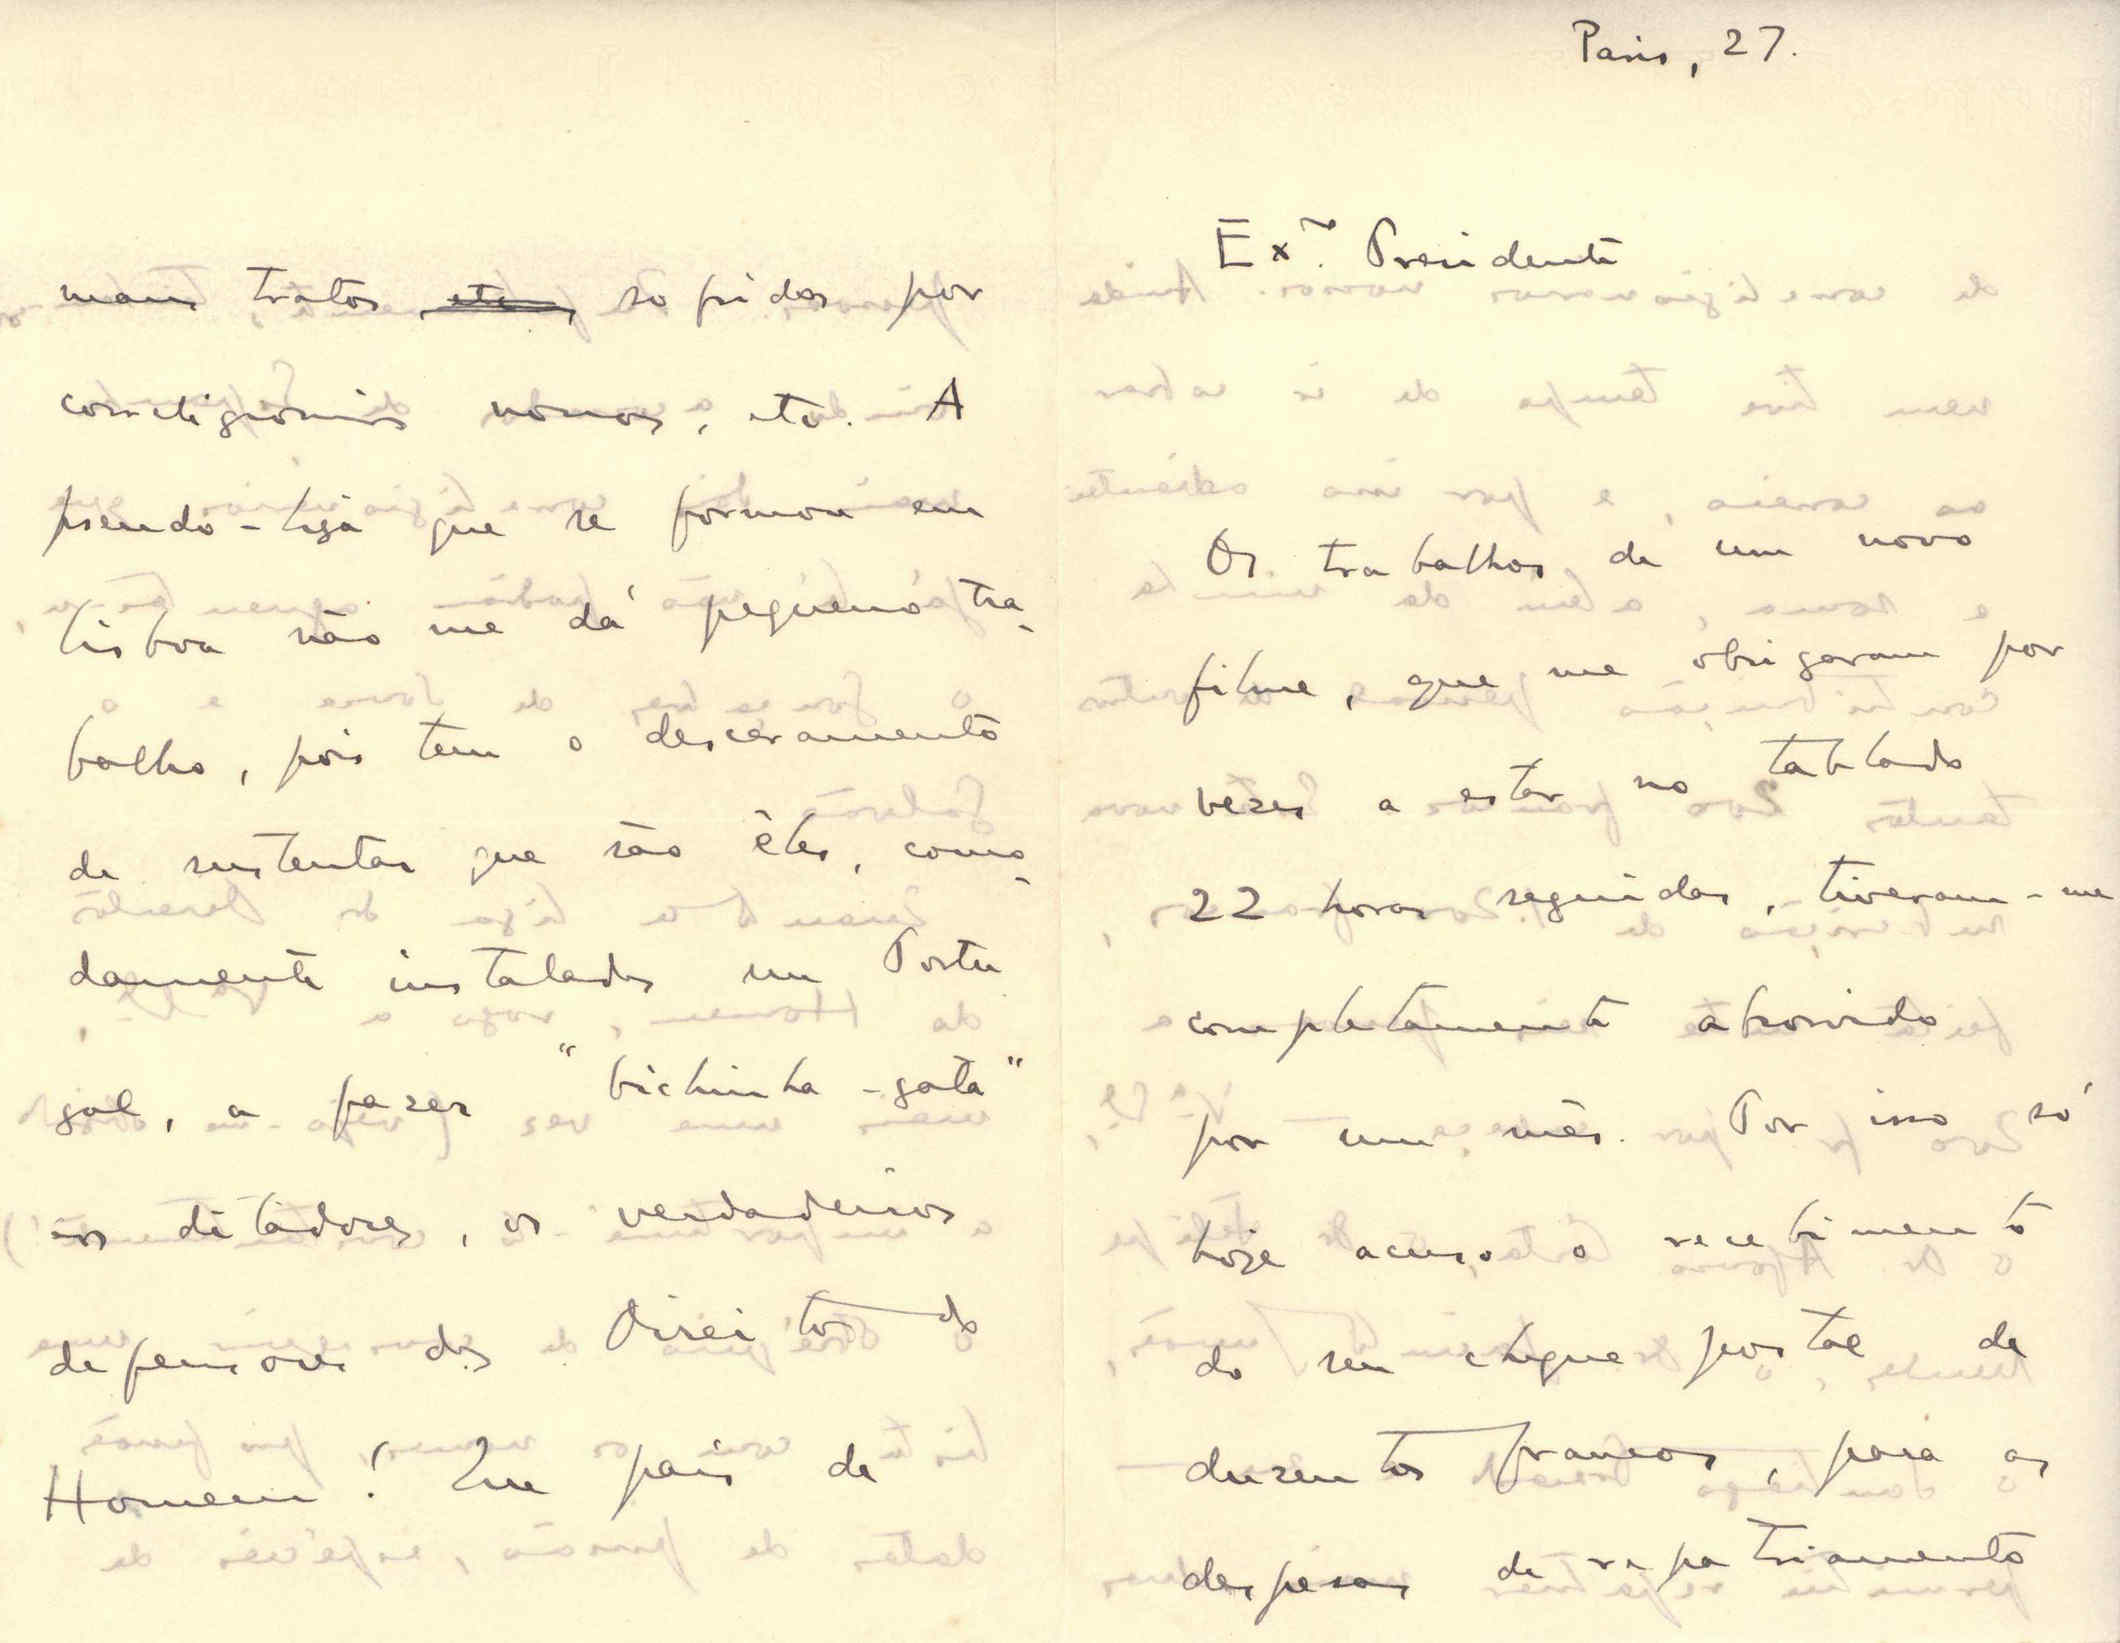 Paris, 27.
Exmo. Presidente
Os trabalhos de um novo
filme, que me obrigaram por
vezes a estar no tablado
22 horas seguidas, tiveram-me
completamente absorvido
por um mês. Por isso só
hoje acuso o recebimento
do seu cheque postal de
duzentos francos, para as
despesas de repatriamento
maus tratos sofridos por
correligionários nossos, etc. A
pseudo-liga que se formou em
Lisboa não me dá pequeno tra-
balho, pois tem o descaramento
de sustentar que são êles, como-
damente instalados em Portu
gal, a fazer "bichinha-gata"
aos ditadores, os verdadeiros
defensores dos Direitos do
Homem! Em país de